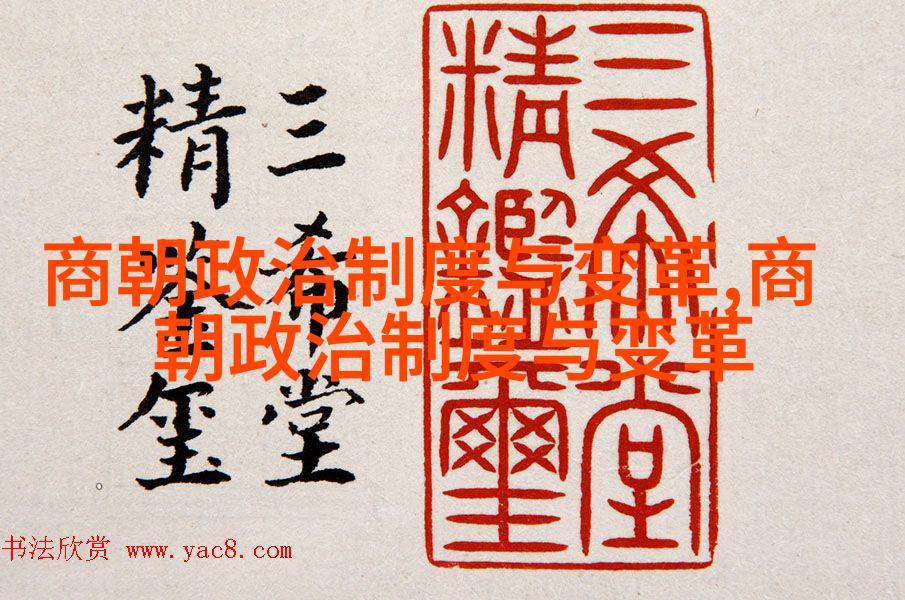 三希堂
精鉴玺
三希堂
精鑑璽
商朝政治制度与变革,商
朝政治制度与变革
书法欣赏 www.yac8.com